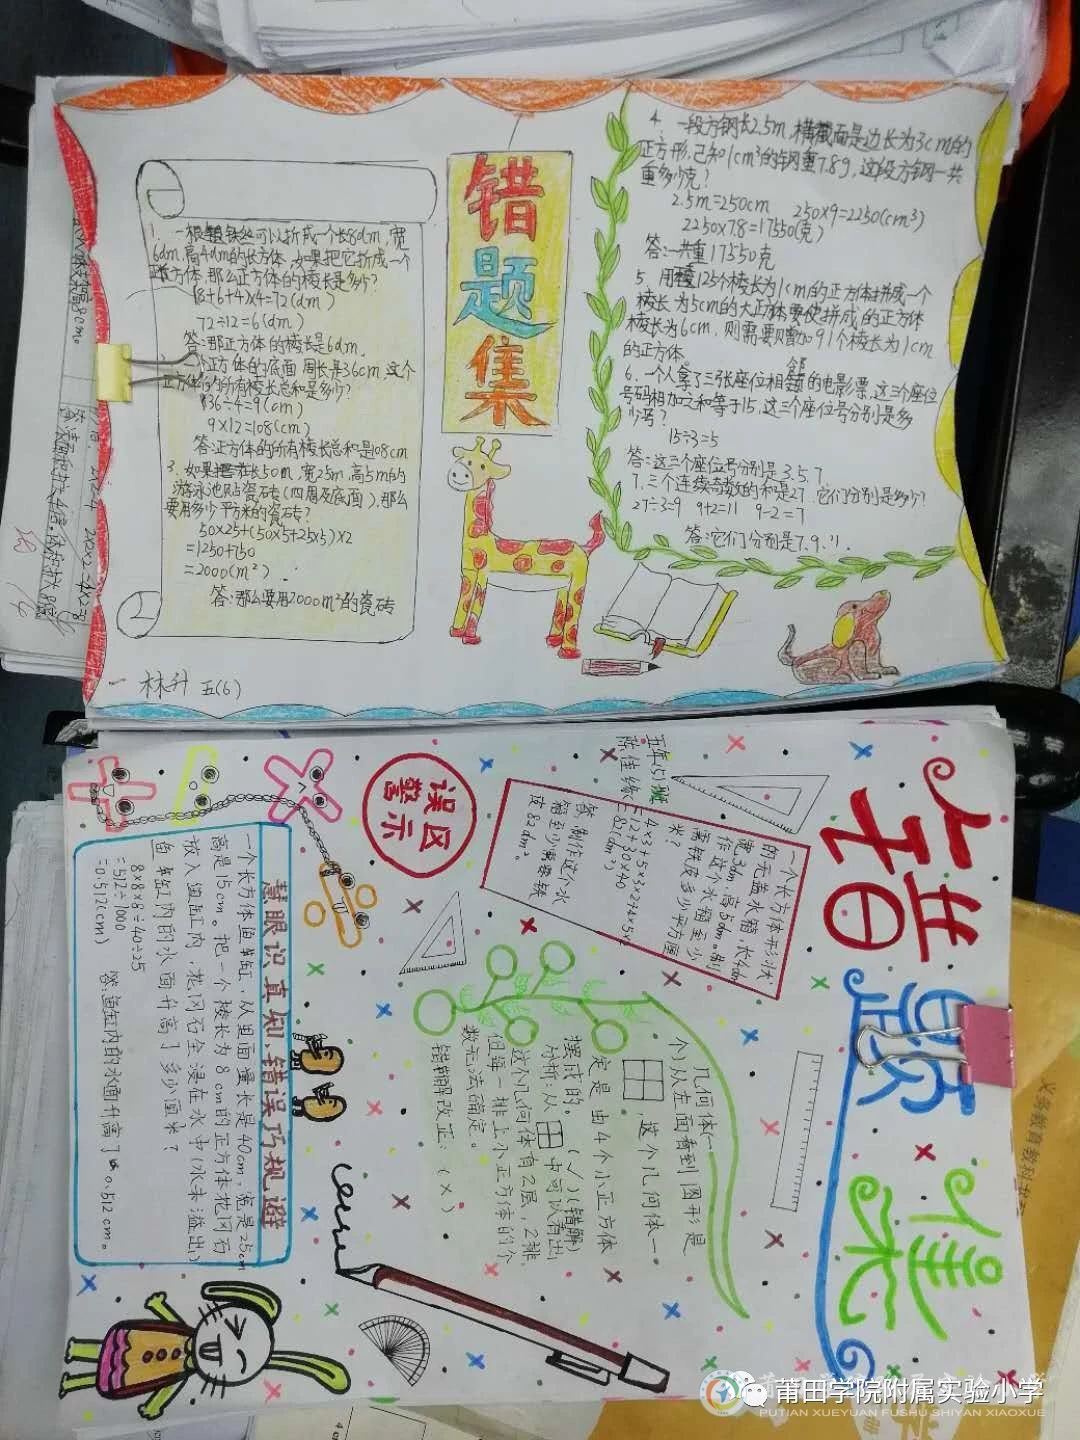 错题集
1. 一根铁丝可以折成一个长8dm,宽
6dm,高4dm的长方体,如果把它折成一个
正方体,那么正方体的棱长是多少?
(8+6+4)×4=72(dm)
72÷12=6(dm)
答:那正方体的棱长是6dm.
一个正方体的底面周长是36cm,这个
正方体的所有棱长总和是多少?
36÷4=9(cm)
9×12=108(cm)
答:正方体的所有棱长总和是108cm
3. 如果把一个长50m,宽25m,高5m的
游泳池贴瓷砖(四周及底面),那么
要用多少平方米的瓷砖?
50×25+(50×5+25×5)×2
=1250+750
=2000(m²)
答:那么要用2000m²的瓷砖
4. 一段方钢长2.5m,横截面是边长为3cm的
正方形,已知1cm³的钢重7.8g,这段方钢一共
重多少克?
2.5m=250cm 250×9=2250(cm³)
2250×7.8=17550(克)
答:一共重17550克
5. 用棱125个棱长为1cm的正方体拼成一个
棱长为5cm的大正方体,要使拼成的正方体
棱长为6cm,则需要增加91个棱长为1cm
的正方体.
6. 一个人拿了三张座位相邻的电影票,这三个座位
号码相加之和等于15,这三个座位号分别是多
少号?
15÷3=5
答:这三个座位号分别是3.5.7
7. 三个连续奇数的和是27.它们分别是多少?
27÷3=9 9+2=11 9-2=7
答:它们分别是7.9.11.
林升 五(6)
错题集
五年5班
陈佳缘
误区
警示
一个长方体形状
的无盖水箱,长4dm
宽3dm,高5dm。制
作这个水箱至少
需铁皮多少平方分
米?
4×3+5×3×2+4×5×2
=12+30+40
=82(dm²)
答:制作这个水
箱至少需要铁
皮82dm²。
一个几何体(
从左面看到图形是
,这个几何体一
定是由4个小正方体
摆成的。(√)(错解)
分析:从 中可以看出
这个几何体有2层,2排,
但每一排上小正方体的个
数无法确定。
错解改正:(×)
慧眼识真知,错误巧规避
一个长方体鱼缸,从里面量长是40cm,宽是25cm
高是15cm。把一个棱长为8cm的正方体花冈石
放入鱼缸内,花冈石全浸在水中(水未溢出)
鱼缸内的水面升高了多少厘米?
8×8×8÷40÷25
=512÷1000
=0.512(cm)
答:鱼缸内的水面升高了0.512cm。
义务教育教科书
莆田学院附属实验小学
PUTIAN XUEYUAN FUSHU SHIYAN XIAOXUE